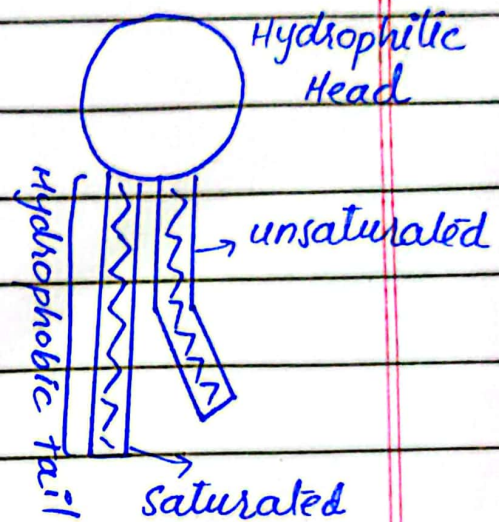 Hydrophilic
Head
Hydrophobic tail
unsaturated
saturated